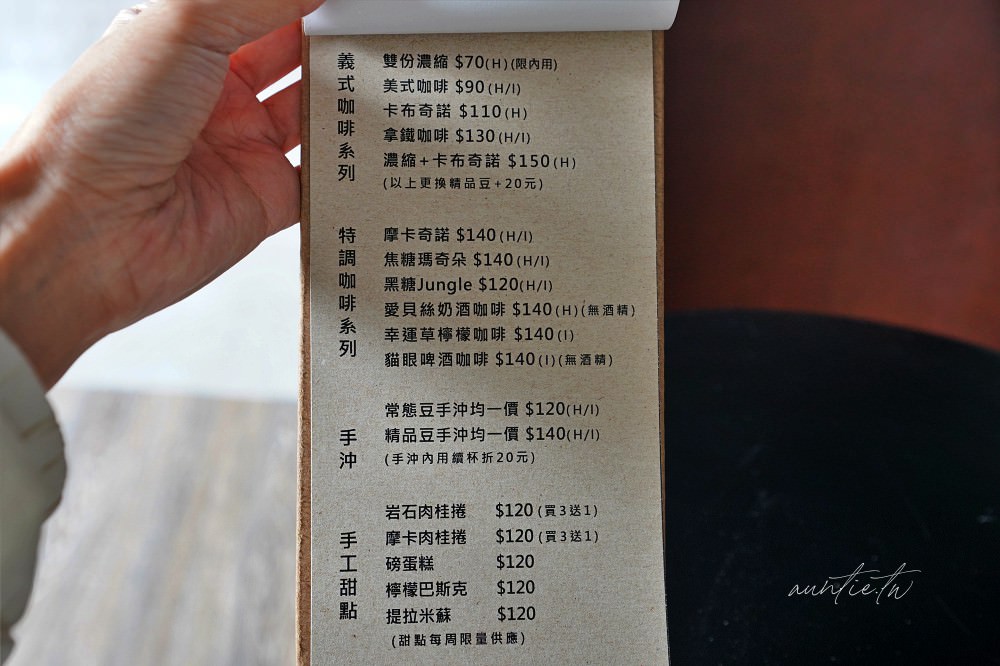 義式咖啡系列
雙份濃縮 $70(H)(限內用)
美式咖啡 $90(H/I)
卡布奇諾 $110(H)
拿鐵咖啡 $130(H/I)
濃縮+卡布奇諾 $150(H)
(以上更換精品豆+20元)
特調咖啡系列
摩卡奇諾 $140(H/I)
焦糖瑪奇朵 $140(H/I)
黑糖Jungle $120(H/I)
愛貝絲奶酒咖啡 $140(H)(無酒精)
幸運草檸檬咖啡 $140(I)
貓眼啤酒咖啡 $140(I)(無酒精)
手沖
常態豆手沖均一價 $120(H/I)
精品豆手沖均一價 $140(H/I)
(手沖內用續杯折20元)
手工甜點
岩石肉桂捲 $120(買3送1)
摩卡肉桂捲 $120(買3送1)
磅蛋糕 $120
檸檬巴斯克 $120
提拉米蘇 $120
(甜點每周限量供應)
auntie.tw